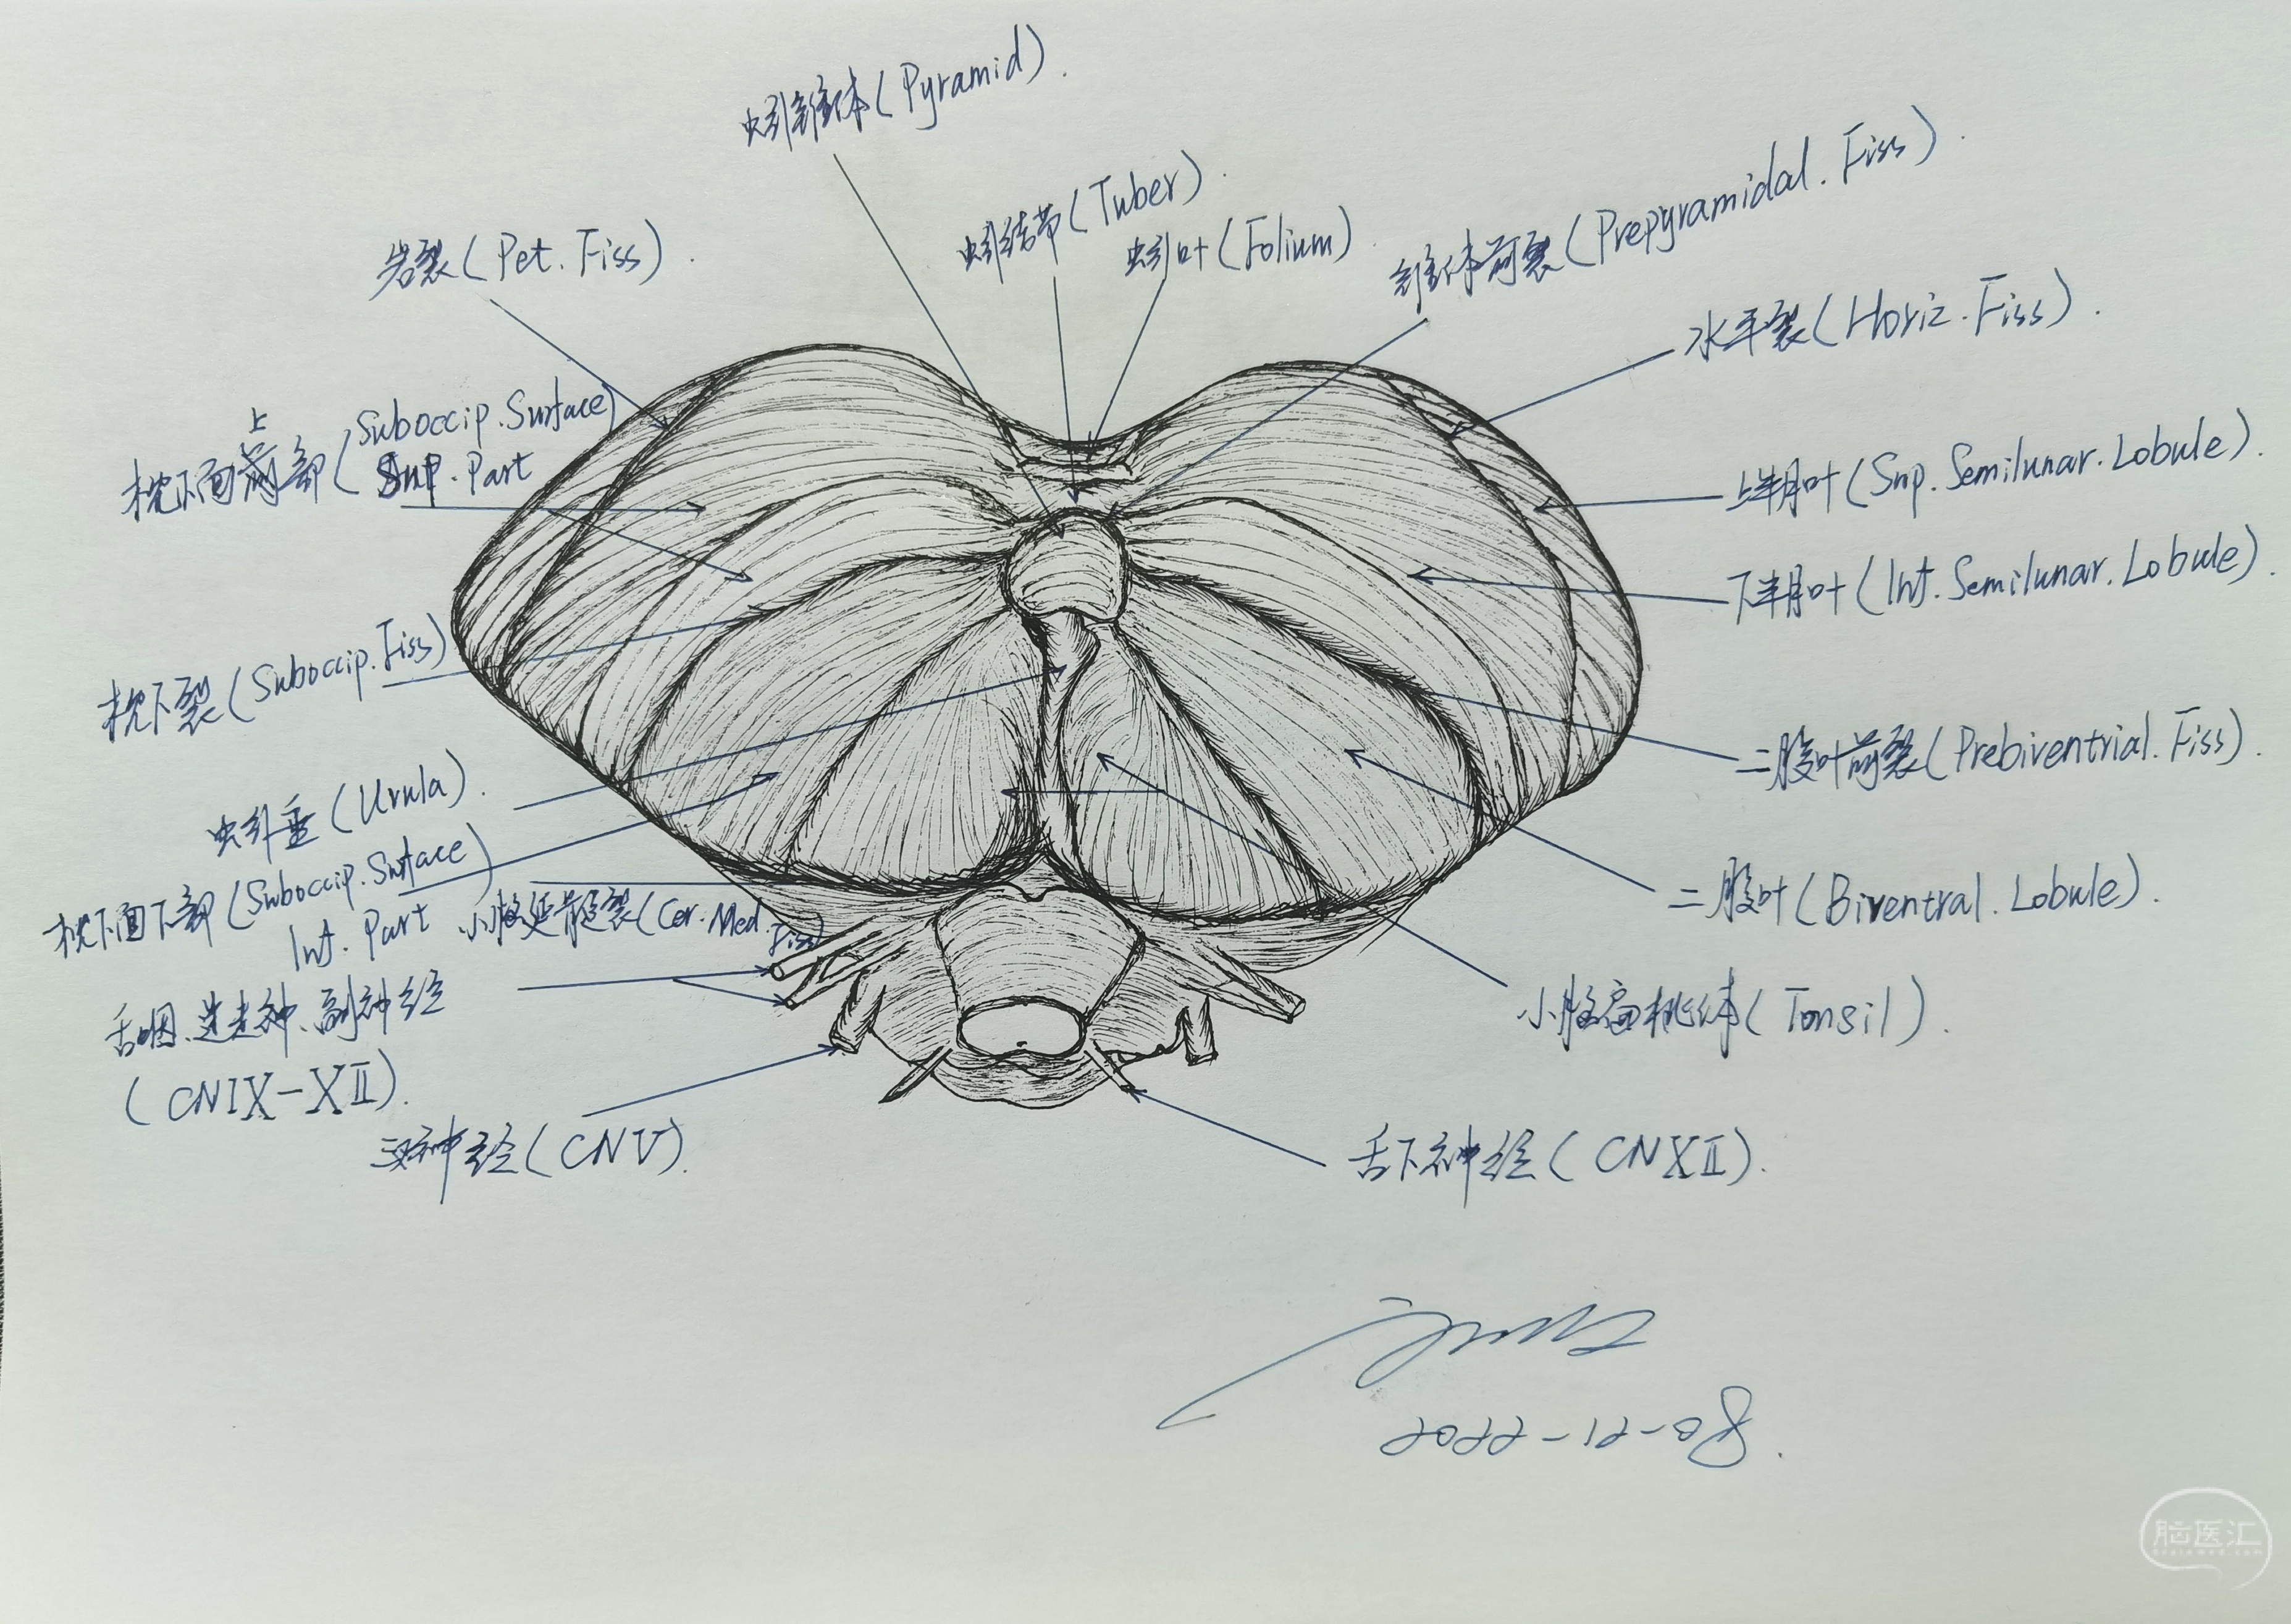 蚓锥体(Pyramid).
蚓结节(Tuber).
蚓叶(Folium)
锥体前裂(Prepyramidal.Fiss).
岩裂(Pet.Fiss).
水平裂(Horiz.Fiss).
上
枕下面部(Suboccip.Surface)
Sup.Part
上半月叶(Sup.Semilunar.Lobule).
下半月叶(Inf.Semilunar.Lobule).
枕下裂(Suboccip.Fiss)
二腹叶前裂(Prebiventrial.Fiss).
蚓垂(Uvula).
枕下面下部(Suboccip.Surface)
Inf.Part
小脑延髓裂(Cer.Med.Fiss)
二腹叶(Biventral.Lobule).
舌咽、迷走神、副神经
(CNIX-XII).
小脑扁桃体(Tonsil).
三叉神经(CNV).
舌下神经(CNXII).
2022-12-08.
脑医汇